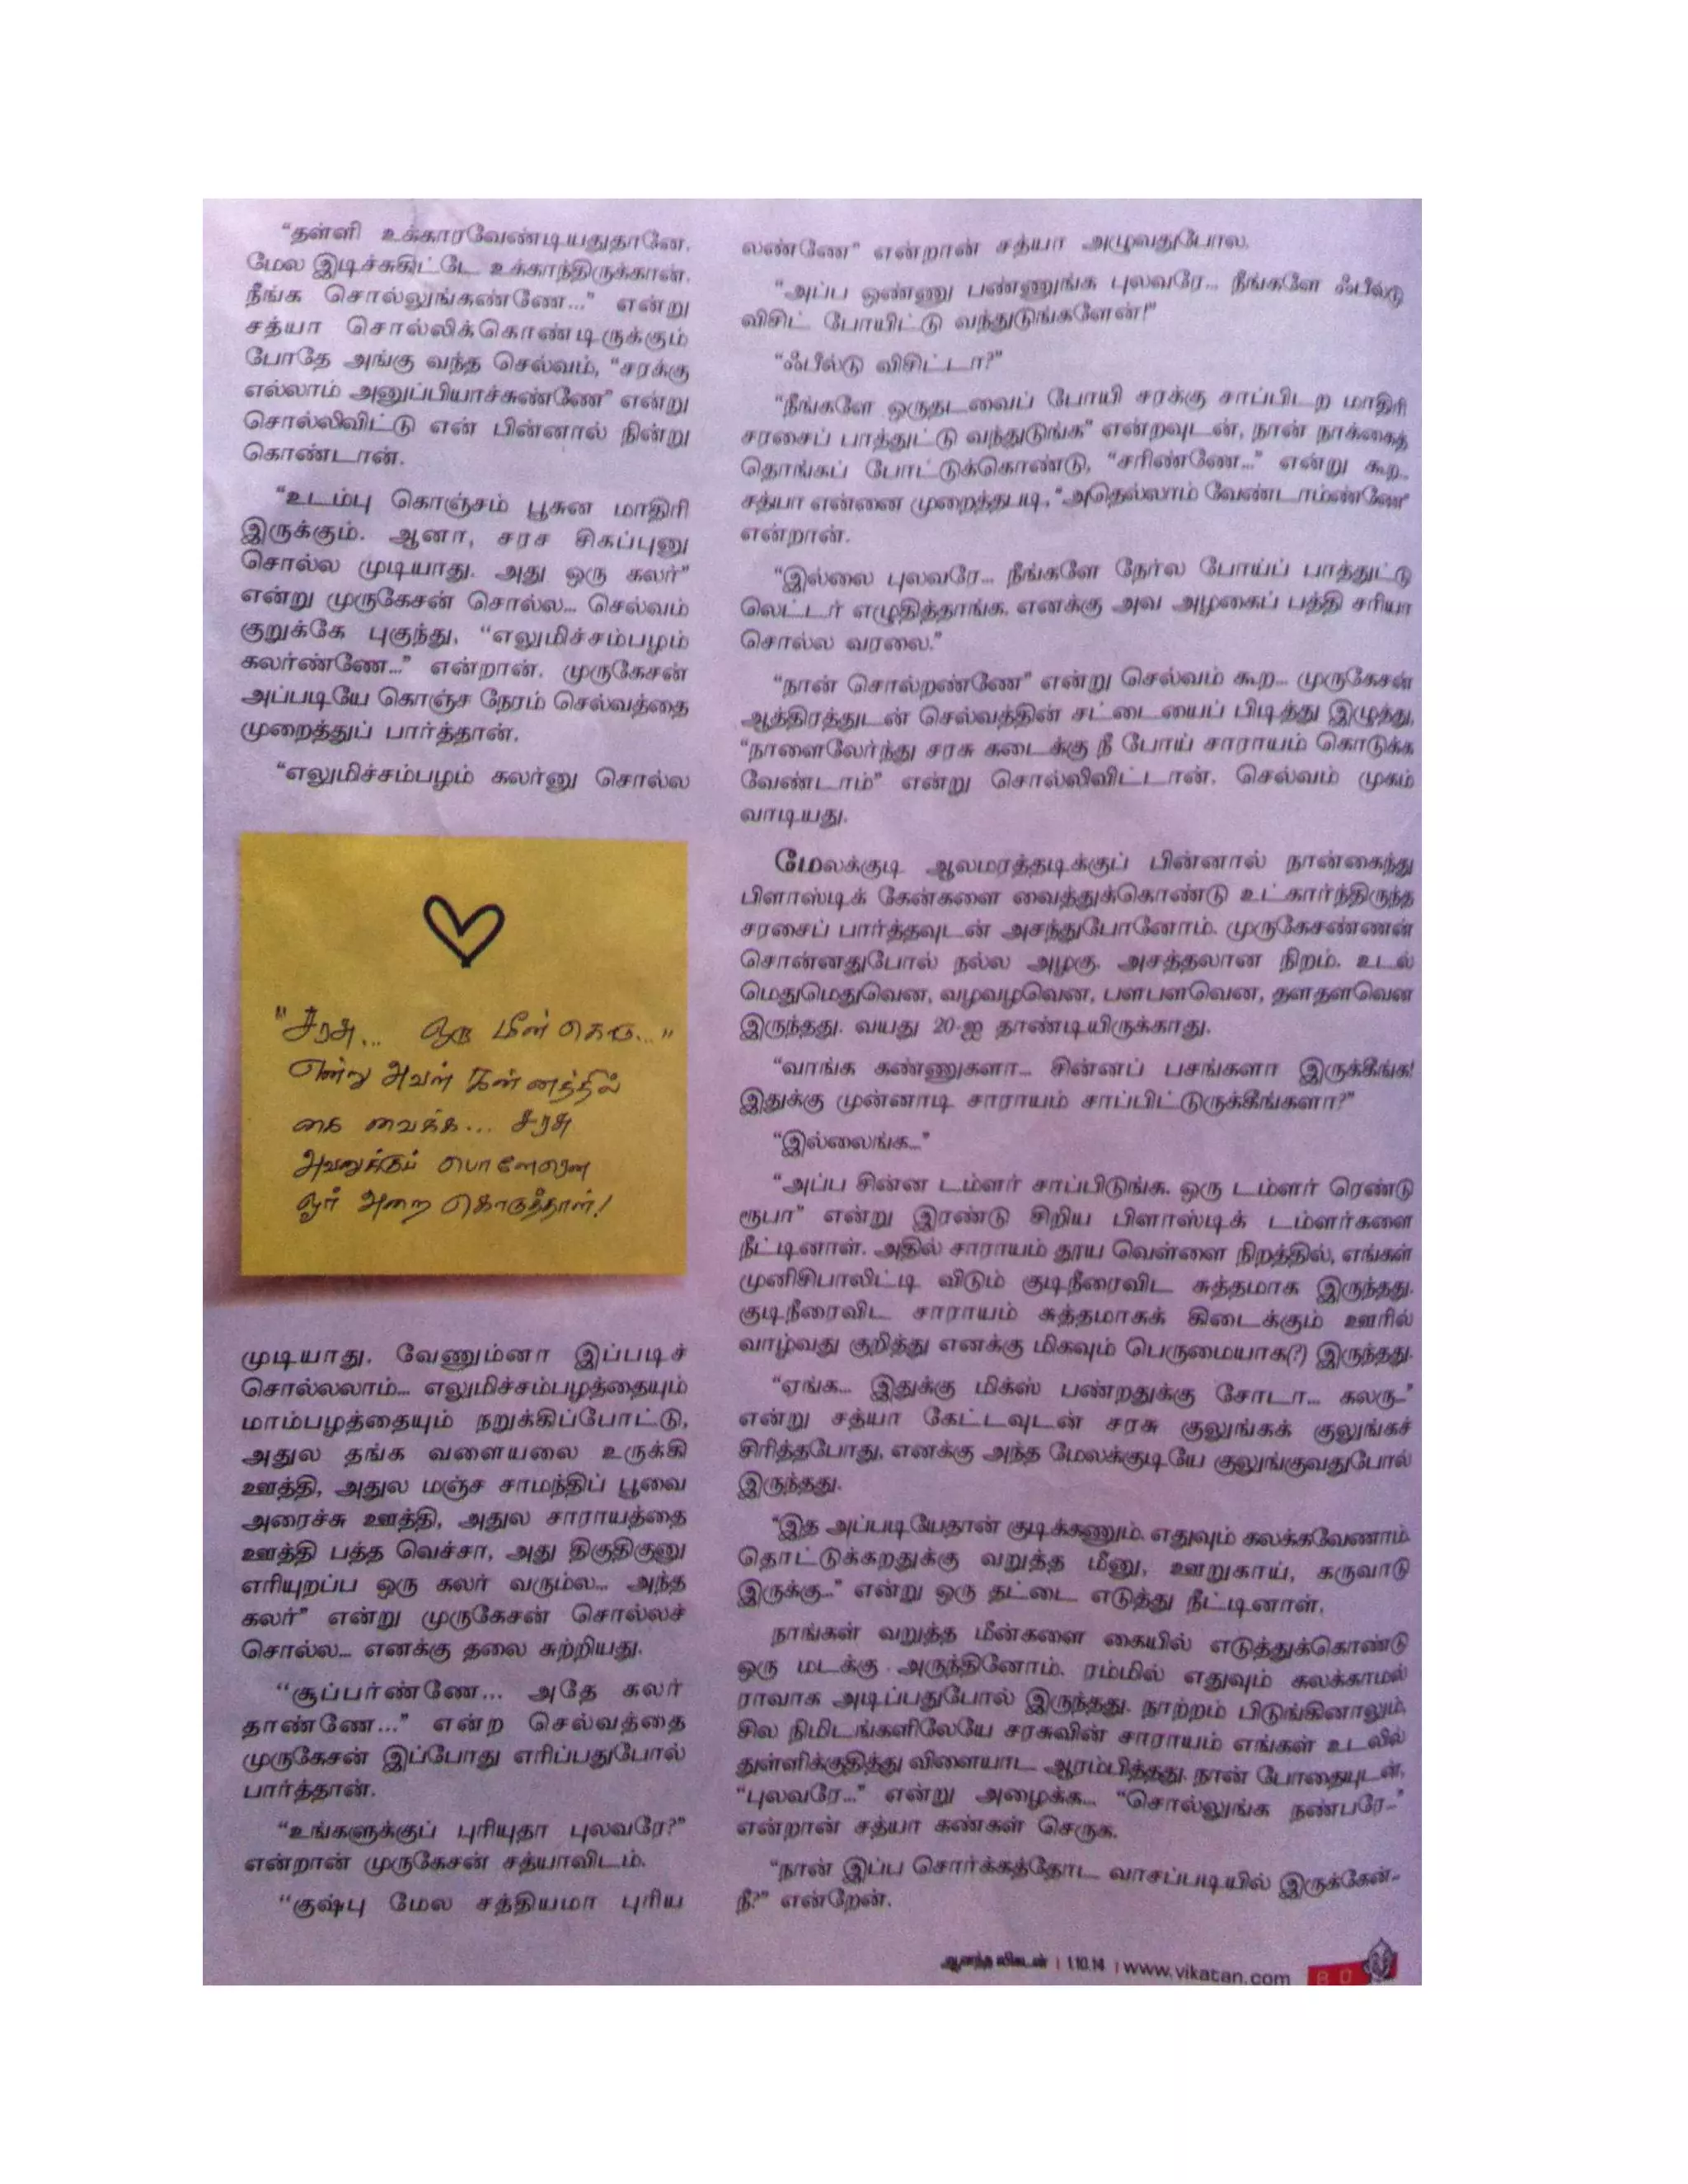 “தள்ளி உக்காரவேண்டியதுதானே.
மேல இடிச்சுகிட்டே உக்காந்திருக்கான்.
நீங்க சொல்லுங்கண்ணே...” என்று
சத்யா சொல்லிக்கொண்டிருக்கும்
போதே அங்கு வந்த செல்வம், “சரக்கு
எல்லாம் அனுப்பியாச்சுண்ணே” என்று
சொல்லிவிட்டு என் பின்னால் நின்று
கொண்டான்.
“உடம்பு கொஞ்சம் பூசுன மாதிரி
இருக்கும். ஆனா, சரச சிகப்புனு
சொல்ல முடியாது. அது ஒரு கலர்”
என்று முருகேசன் சொல்ல... செல்வம்
குறுக்கே புகுந்து, “எலுமிச்சம்பழம்
கலர்ண்ணே...” என்றான். முருகேசன்
அப்படியே கொஞ்ச நேரம் செல்வத்தை
முறைத்துப் பார்த்தான்.
“எலுமிச்சம்பழம் கலர்னு சொல்ல
“சரசு... ஒரு மீன் கொடு...”
என்று அவள் கன்னத்தில்
கை வைக்க... சரசு
அவனுக்குப் பொளேரென
ஓர் அறை கொடுத்தாள்!
முடியாது. வேணும்னா இப்படிச்
சொல்லலாம்... எலுமிச்சம்பழத்தையும்
மாம்பழத்தையும் நறுக்கிப்போட்டு,
அதுல தங்க வளையலை உருக்கி
ஊத்தி, அதுல மஞ்ச சாமந்திப் பூவை
அரைச்சு ஊத்தி, அதுல சாராயத்தை
ஊத்தி பத்த வெச்சா, அது திகுதிகுனு
எரியுறப்ப ஒரு கலர் வரும்ல... அந்த
கலர்” என்று முருகேசன் சொல்லச்
சொல்ல... எனக்கு தலை சுற்றியது.
“சூப்பர்ண்ணே... அதே கலர்
தாண்ணே...” என்ற செல்வத்தை
முருகேசன் இப்போது எரிப்பதுபோல்
பார்த்தான்.
“உங்களுக்குப் புரியுதா புலவரே?”
என்றான் முருகேசன் சத்யாவிடம்.
“குஷ்பு மேல சத்தியமா புரிய
லண்ணே” என்றான் சத்யா அழுவதுபோல.
“அப்ப ஒண்ணு பண்ணுங்க புலவரே... நீங்களே ஃபீல்டு
விசிட் போயிட்டு வந்துடுங்களேன்!”
“ஃபீல்டு விசிட்டா?”
“நீங்களே ஒருதடவைப் போயி சரக்கு சாப்பிடற மாதிரி
சரசைப் பாத்துட்டு வந்துடுங்க” என்றவுடன், நான் நாக்கைத்
தொங்கப் போட்டுக்கொண்டு, “சரிண்ணே...” என்று கூற..
சத்யா என்னை முறைத்தபடி, “அதெல்லாம் வேண்டாம்ண்ணே”
என்றான்.
“இல்லை புலவரே... நீங்களே நேர்ல போய்ப் பாத்துட்டு
லெட்டர் எழுதித்தாங்க. எனக்கு அவ அழகைப் பத்தி சரியா
சொல்ல வரலை.”
“நான் சொல்றண்ணே” என்று செல்வம் கூற... முருகேசன்
ஆத்திரத்துடன் செல்வத்தின் சட்டையைப் பிடித்து இழுத்து,
“நாளைலேர்ந்து சரசு கடைக்கு நீ போய் சாராயம் கொடுக்க
வேண்டாம்” என்று சொல்லிவிட்டான். செல்வம் முகம்
வாடியது.
மேலக்குடி ஆலமரத்தடிக்குப் பின்னால் நான்கைந்து
பிளாஸ்டிக் கேன்களை வைத்துக்கொண்டு உட்கார்ந்திருந்த
சரசைப் பார்த்தவுடன் அசந்துபோனோம். முருகேசண்ணன்
சொன்னதுபோல் நல்ல அழகு. அசத்தலான நிறம். உடல்
மெதுமெதுவென, வழவழவென, பளபளவென, தளதளவென
இருந்தது. வயது 20-ஐ தாண்டியிருக்காது.
“வாங்க கண்ணுகளா... சின்னப் பசங்களா இருக்கீங்க!
இதுக்கு முன்னாடி சாராயம் சாப்பிட்டுருக்கீங்களா?”
“இல்லைங்க...”
“அப்ப சின்ன டம்ளர் சாப்பிடுங்க. ஒரு டம்ளர் ரெண்டு
ரூபா” என்று இரண்டு சிறிய பிளாஸ்டிக் டம்ளர்களை
நீட்டினாள். அதில் சாராயம் தூய வெள்ளை நிறத்தில், எங்கள்
முனிசிபாலிட்டி விடும் குடிநீரைவிட சுத்தமாக இருந்தது.
குடிநீரைவிட சாராயம் சுத்தமாகக் கிடைக்கும் ஊரில்
வாழ்வது குறித்து எனக்கு மிகவும் பெருமையாக(?) இருந்தது.
“ஏங்க... இதுக்கு மிக்ஸ் பண்றதுக்கு சோடா... கலரு...”
என்று சத்யா கேட்டவுடன் சரசு குலுங்கக் குலுங்கச்
சிரித்தபோது, எனக்கு அந்த மேலக்குடியே குலுங்குவதுபோல்
இருந்தது.
“இத அப்படியேதான் குடிக்கணும். எதுவும் கலக்கவேணாம்.
தொட்டுக்கறதுக்கு வறுத்த மீனு, ஊறுகாய், கருவாடு
இருக்கு...” என்று ஒரு தட்டை எடுத்து நீட்டினாள்.
நாங்கள் வறுத்த மீன்களை கையில் எடுத்துக்கொண்டு
ஒரு மடக்கு அருந்தினோம். ரம்மில் எதுவும் கலக்காமல்
ராவாக அடிப்பதுபோல் இருந்தது. நாற்றம் பிடுங்கினாலும்,
சில நிமிடங்களிலேயே சரசுவின் சாராயம் எங்கள் உடலில்
துள்ளிக்குதித்து விளையாட ஆரம்பித்தது. நான் போதையுடன்,
“புலவரே...” என்று அழைக்க... “சொல்லுங்க நண்பரே...”
என்றான் சத்யா கண்கள் செருக.
“நான் இப்ப சொர்க்கத்தோட வாசப்படியில் இருக்கேன்...
நீ?” என்றேன்.
ஆனந்த விகடன் | 1.10.14 | www.vikatan.com 80